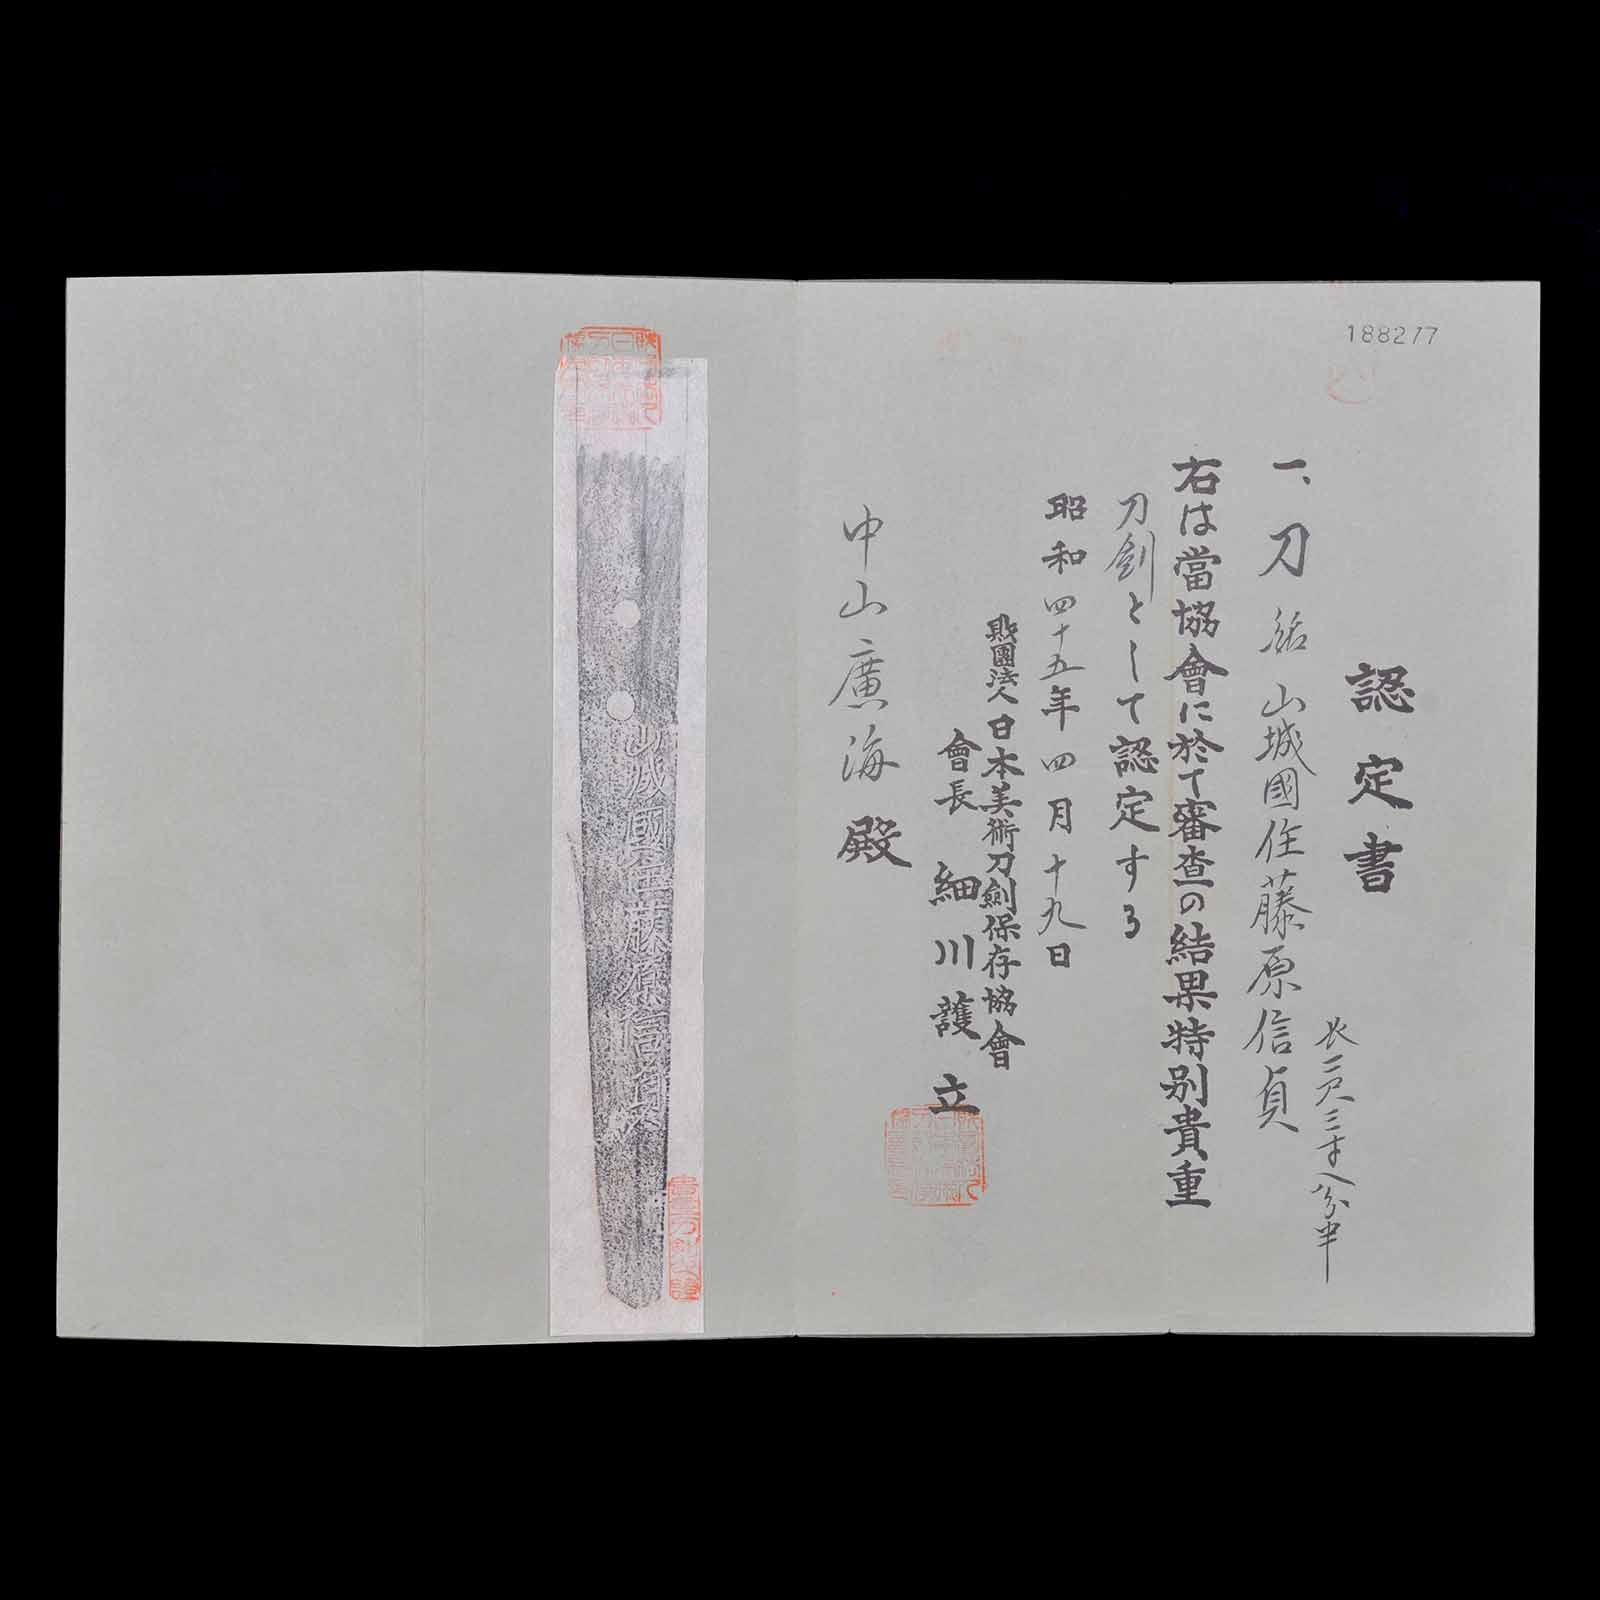 188277
認定書
一、刀 銘 山城國住藤原信貞
長二尺三寸八分半
右は當協會に於て審査の結果特別貴重
刀剣として認定する
昭和四十五年四月十九日
財團法人日本美術刀剣保存協會
會長 細川護立
中山廣海殿
山城國住藤原信貞